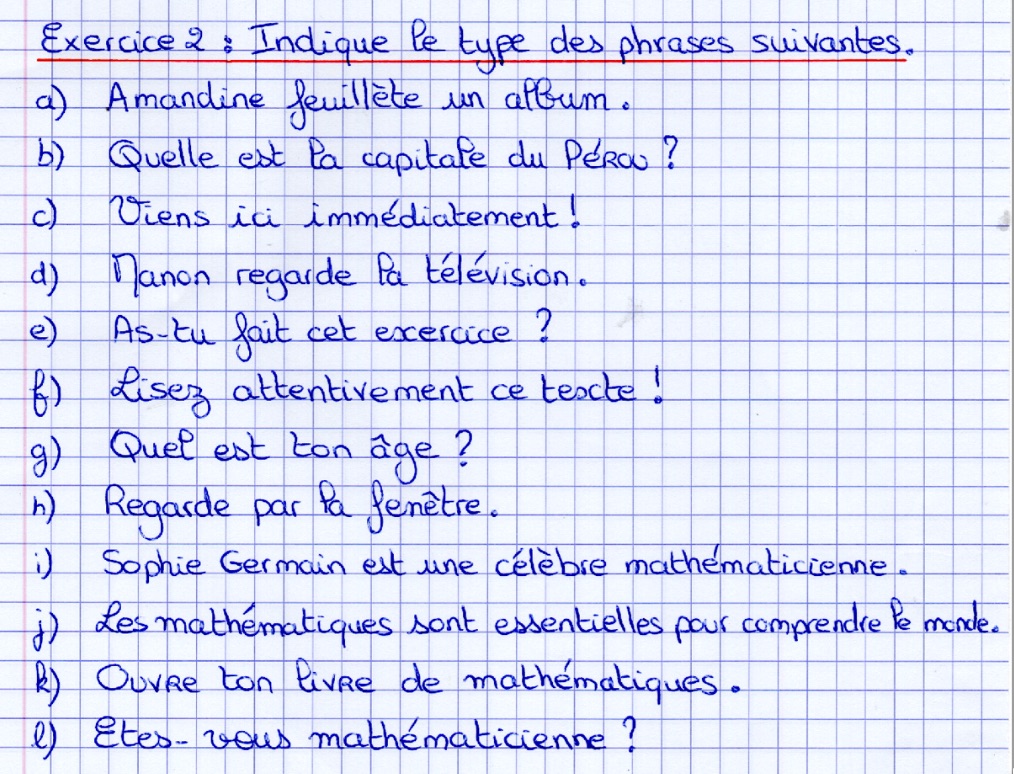 Exercice 2 : Indique le type des phrases suivantes.
a) Amandine feuillète un album.
b) Quelle est la capitale du Pérou ?
c) Viens ici immédiatement !
d) Manon regarde la télévision.
e) As-tu fait cet exercice ?
f) Lisez attentivement ce texte !
g) Quel est ton âge ?
h) Regarde par la fenêtre.
i) Sophie Germain est une célèbre mathématicienne.
j) Les mathématiques sont essentielles pour comprendre le monde.
k) Ouvre ton livre de mathématiques.
l) Etes-vous mathématicienne ?